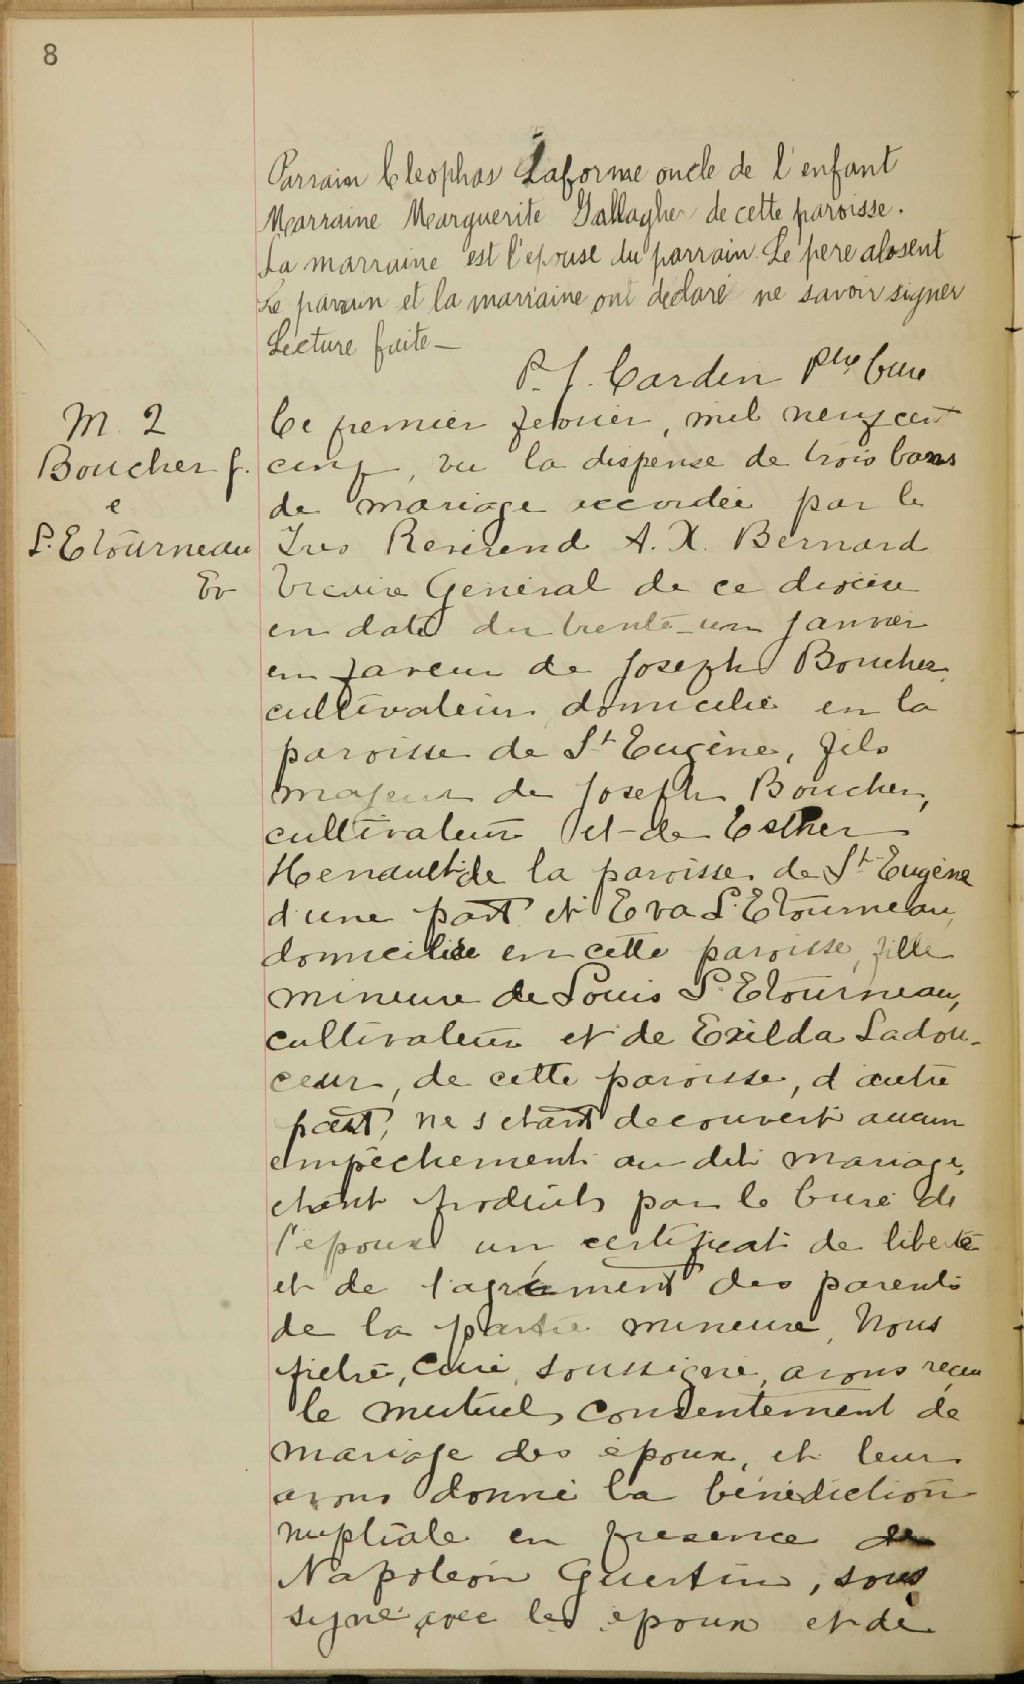 8
Parrain Cleophas Laforme oncle de l'enfant
Marraine Marguerite Gallagher de cette paroisse.
La marraine est l'epouse du parrain. Le pere absent
Le parrain et la marraine ont déclaré ne savoir signer
Lecture faite —
P. J. Cardin Ptre Cure
M. 2
Boucher J.
e
L. Etourneau
Ev
Ce premier fevrier, mil neuf cent
cinq, vu la dispense de trois bans
de mariage accordée par le
Tres Révérend A. X. Bernard
Vicaire Général de ce diocèse
en date du trente-un Janvier
en faveur de Joseph Boucher,
cultivateur domicilié en la
paroisse de St Eugène, fils
majeur de Joseph Boucher,
cultivateur et de Esther
Henault de la paroisse de St Eugène
d'une part et Eva L. Etourneau,
domiciliée en cette paroisse, fille
mineure de Louis L. Etourneau,
cultivateur et de Exilda Ladou-
ceur, de cette paroisse, d'autre
part, ne s'etant decouvert aucun
empêchement au dit mariage,
etant produits par le Curé de
l'epoux un certificat de liberté
et de l'agrément des parents
de la partie mineure, Nous
prêtre, Curé, soussigné, avons reçu
le mutuel consentement de
mariage des époux, et leur
avons donné la bénédiction
nuptiale en presence de
Napoléon Guertin, sous
signé avec les époux et de